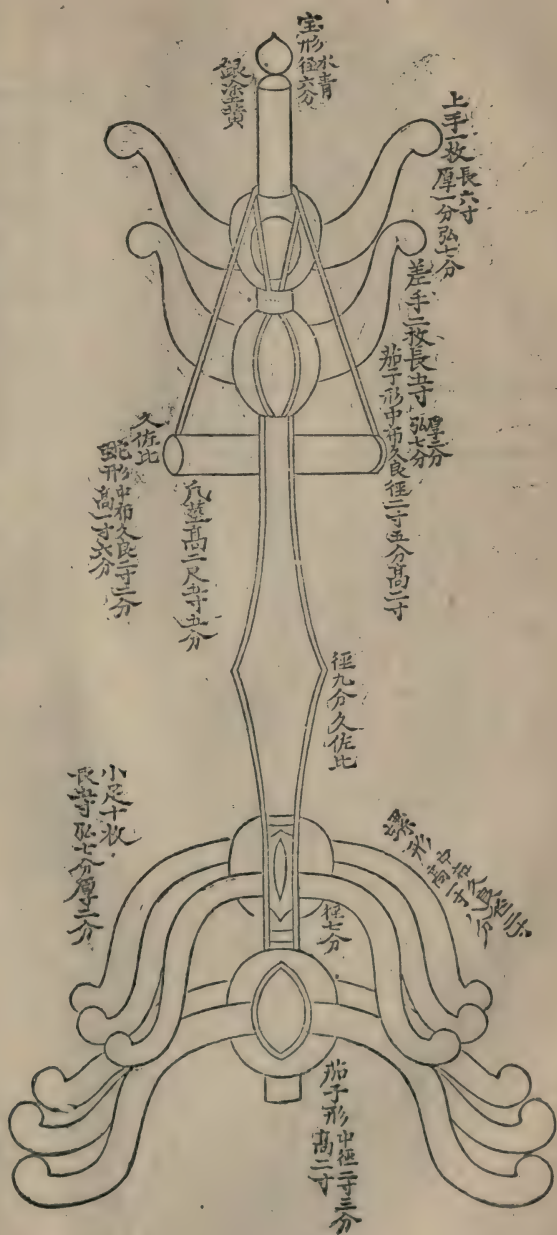 宝形水青
径六分
銀塗黄
上手一枚長六寸
厚一分弘七分
差手二枚長五寸
厚二分
弘七分
茄子形中布久良径二寸五分高二寸
久佐比
形中布久良二寸二分
高一寸六分
茎高二尺五寸五分
径九分久佐比
小足十枚
長寸弘七分厚二分
形
高一寸八分
径七分
茄子形中径二寸三分
高二寸